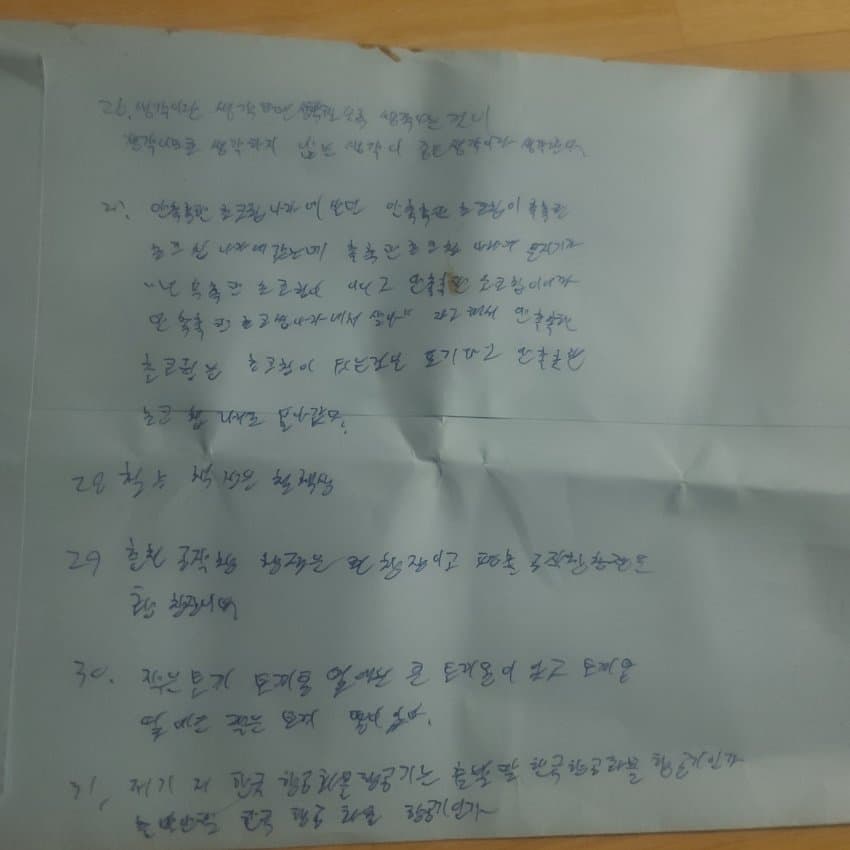 26. 생각이란 생각하면 생각할수록 생각나는 건니
생각나므로 생각하지 않는 생각이 좋은 생각이라 생각한다.
27. 안촉촉한 초코칩 나라에 보면 안촉촉한 초코칩이 촉촉한
초코칩 나라에 갔는데 촉촉한 초코칩 나라의
"넌 촉촉한 초코칩이 아니고 안촉촉한 초코칩이니까
안촉촉한 초코칩나라에서 살아" 라고해서 안촉촉한
초코칩은 초코칩이 되는것을 포기하고 안촉촉한
초코칩 나라로 돌아갔다.
28 책상
29 춘천 공작창 창장은 편 창장이고 평촌 공작창 창장은
황 창장이다
30. 작은 토끼 토끼통 옆에는 큰 토끼통이 있고 토끼통
옆에는 작은 토끼 똥이 있다.
31. 저기 저 한국 항공화물항공기는 출발할 한국항공화물 항공기인가
한국 항공 화물 항공기인가